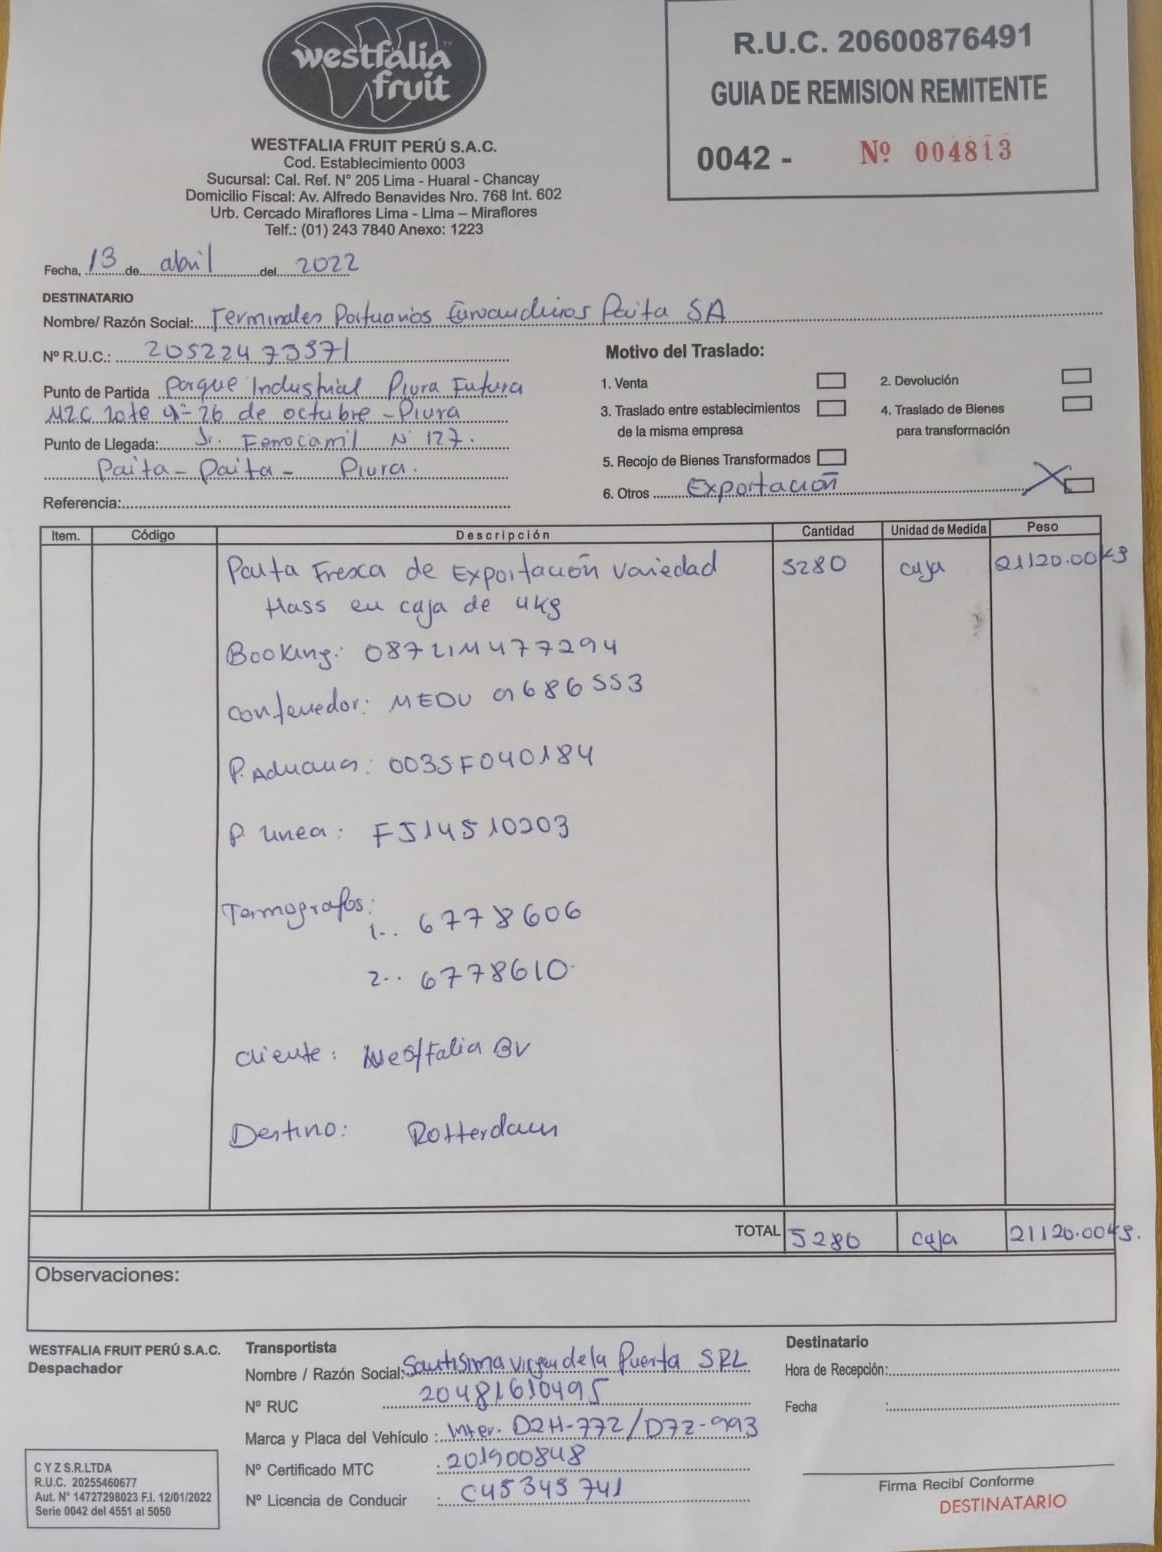 westfalia
fruit
WESTFALIA FRUIT PERÚ S.A.C.
Cod. Establecimiento 0003
Sucursal: Cal. Ref. N° 205 Lima - Huaral - Chancay
Domicilio Fiscal: Av. Alfredo Benavides Nro. 768 Int. 602
Urb. Cercado Miraflores Lima - Lima – Miraflores
Telf.: (01) 243 7840 Anexo: 1223
R.U.C. 20600876491
GUIA DE REMISION REMITENTE
0042 - Nº 004813
Fecha, 13 de abril del 2022
DESTINATARIO
Nombre/ Razón Social: Terminales Portuarios Euroandinos Paita SA
Nº R.U.C.: 20522473571
Punto de Partida Parque Industrial Piura Futura
MZC lote 9- 26 de octubre - Piura
Punto de Llegada: Jr. Ferrocarril N° 127.
Paita - Paita - Piura.
Referencia:
Motivo del Traslado:
1. Venta
2. Devolución
3. Traslado entre establecimientos
de la misma empresa
4. Traslado de Bienes
para transformación
5. Recojo de Bienes Transformados
6. Otros Exportación X
Item. Código Descripción Cantidad Unidad de Medida Peso
Palta Fresca de Exportación Variedad 5280 caja 21120.00 kg
Hass en caja de 4kg
Booking: 087LIM477294
Contenedor: MEDU 9686553
P. Aduana: 003SF040184
P Linea: FJ14510203
Termografos:
1-. 6778606
2-. 6778610
Cliente: Westfalia BV
Destino: Rotterdam
TOTAL 5280 caja 21120.00 kg.
Observaciones:
WESTFALIA FRUIT PERÚ S.A.C.
Despachador
Transportista
Nombre / Razón Social: Santisima Virgen de la Puerta SRL
Nº RUC 20481610495
Marca y Placa del Vehículo : Inter. D2H-772/D7Z-993
Nº Certificado MTC : 201900848
Nº Licencia de Conducir : C45345741
Destinatario
Hora de Recepción:
Fecha :
Firma Recibí Conforme
DESTINATARIO
C Y Z S.R.LTDA
R.U.C. 20255460677
Aut. N° 14727298023 F.I. 12/01/2022
Serie 0042 del 4551 al 5050